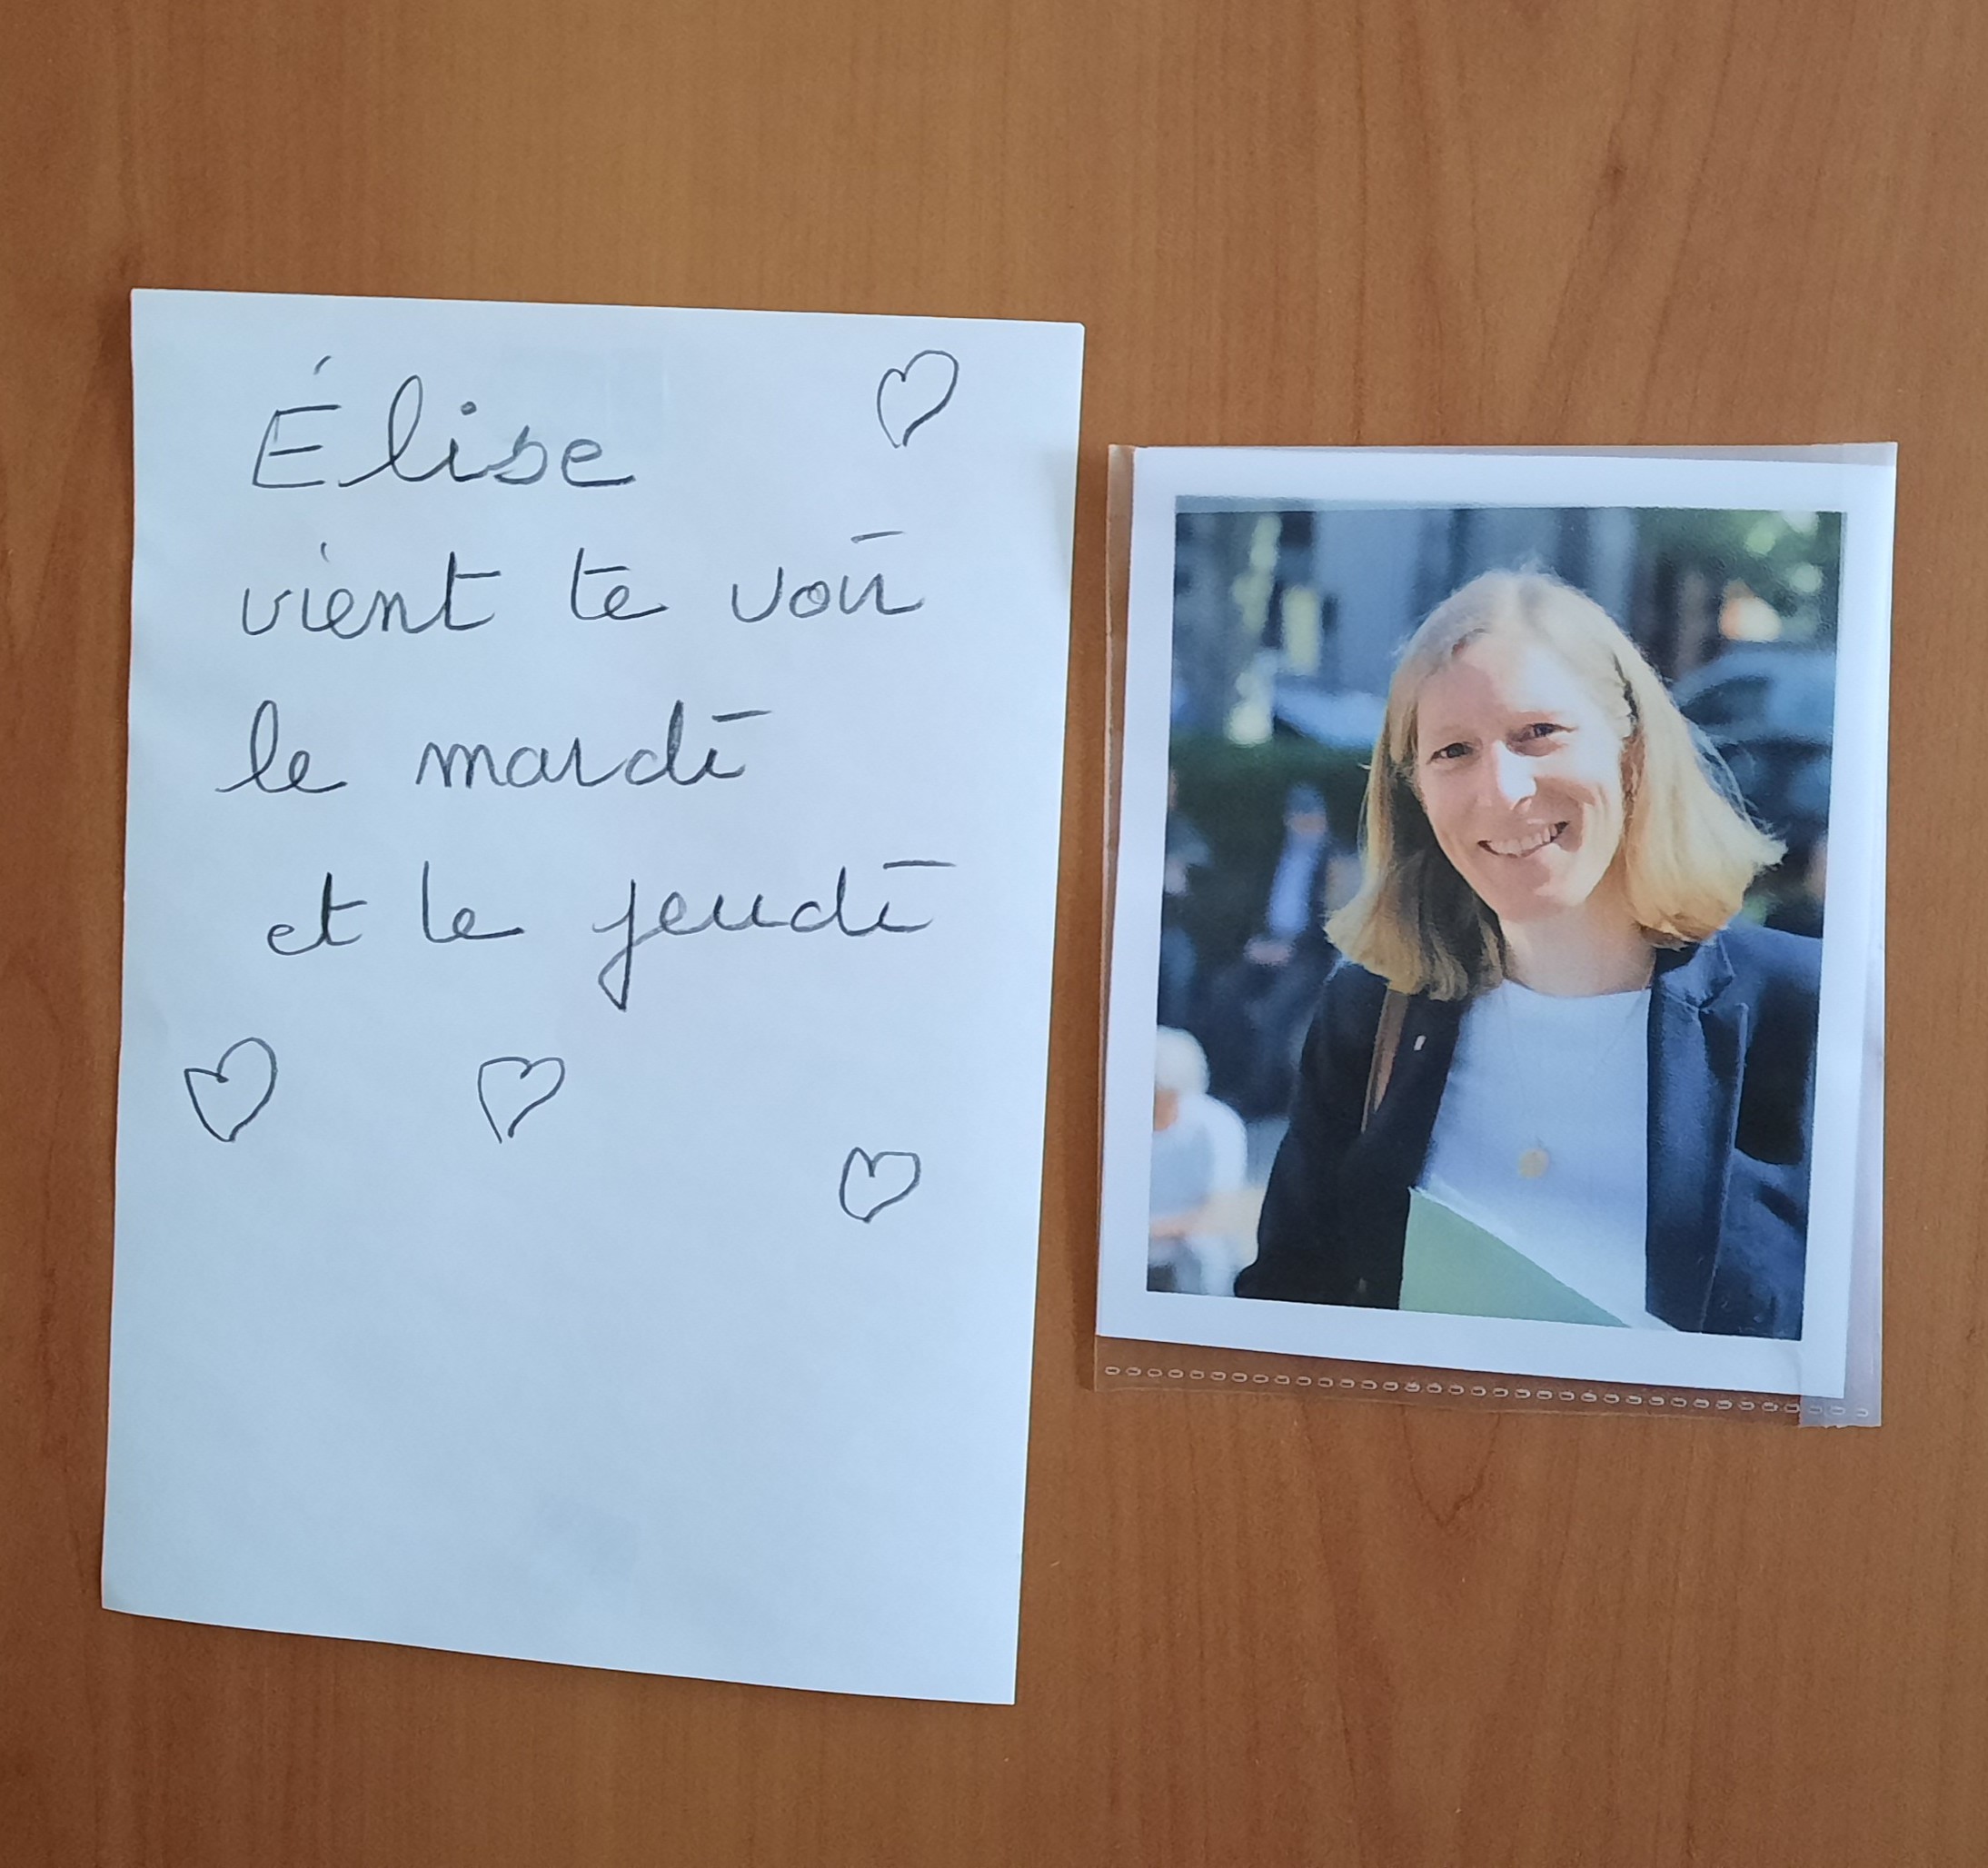 Élise
vient te voir
le mardi
et le jeudi